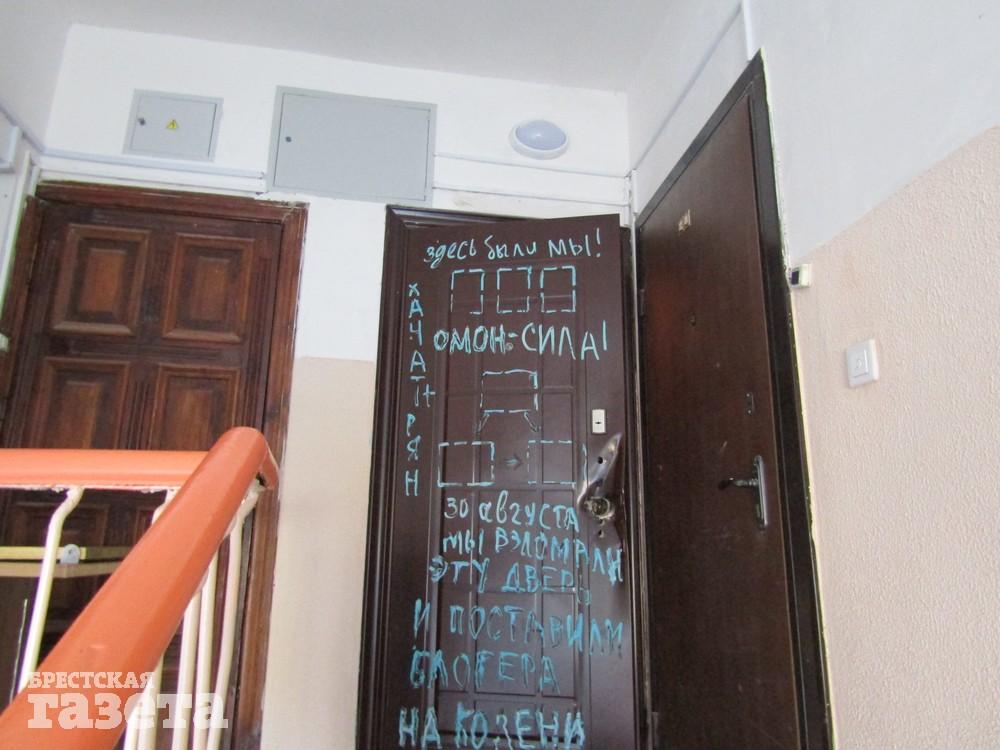 здесь были мы!
ХАЧАТРЯН
ОМОН-СИЛА!
30 августа
мы взломали
эту дверь
и поставили
блогера
на колени
БРЕСТСКАЯ
газета